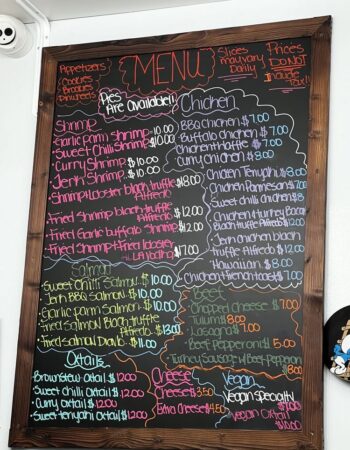 Appetizers
Cookies
Brookies
Pinwheels
MENU
Slices
may vary
Daily
Prices
DO NOT
Include
Tax!!
Pies
Are Available!!
Shrimp
Garlic parm Shrimp 10.00
Sweet Chilli Shrimp 10.00
Curry Shrimp $10.00
Jerk Shrimp $10.00
Shrimp+lobster black truffle $18.00
Alfredo
Fried Shrimp black truffle $12.00
Alfredo
Fried Garlic buffalo Shrimp $12.00
Fried Shrimp+Fried lobster $17.00
Chicken
BBQ Chicken $7.00
Buffalo chicken $7.00
Chicken+Waffle $7.00
Curry chicken $8.00
Chicken Teriyaki $8.00
Chicken Parmesan $7.00
Sweet chilli chicken $8.00
Chicken+turkey Bacon
Black truffle Alfredo $12.00
Jerk chicken black
truffle Alfredo $12.00
Hawaiian $8.00
Chicken+french toast $7.00
Salmon
Sweet Chilli Salmon $10.00
Jerk BBQ Salmon $10.00
Garlic parm Salmon $10.00
Fried Salmon Black truffle
Alfredo $10.00
Fried Salmon $11.00
Beef
Chopped cheese $7.00
$8.00
Lasagna $7.00
Beef Pepperoni $5.00
Turkey Sausage w/ Beef Pepperoni
8.00
Oxtails
Brownstew Oxtail $12.00
Sweet chilli oxtail $12.00
Curry oxtail $12.00
Sweet teriyaki oxtail $12.00
Cheese
Cheese $3.50
Extra Cheese $4.50
Vegan
Vegan specialty
Vegan Oxtail
$10.00